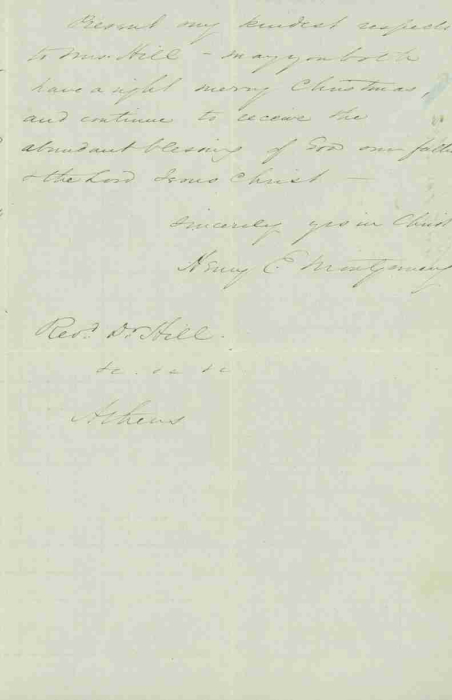 Present my kindest respects
to Mrs. Hill - may you both
have a right merry Christmas,
and continue to receive the
abundant blessing of God our fathe
& the Lord Jesus Christ -
Sincerely yrs in Christ
Henry E Montgomery
Revd. Dr Hill.
&c. &c &c
Athens